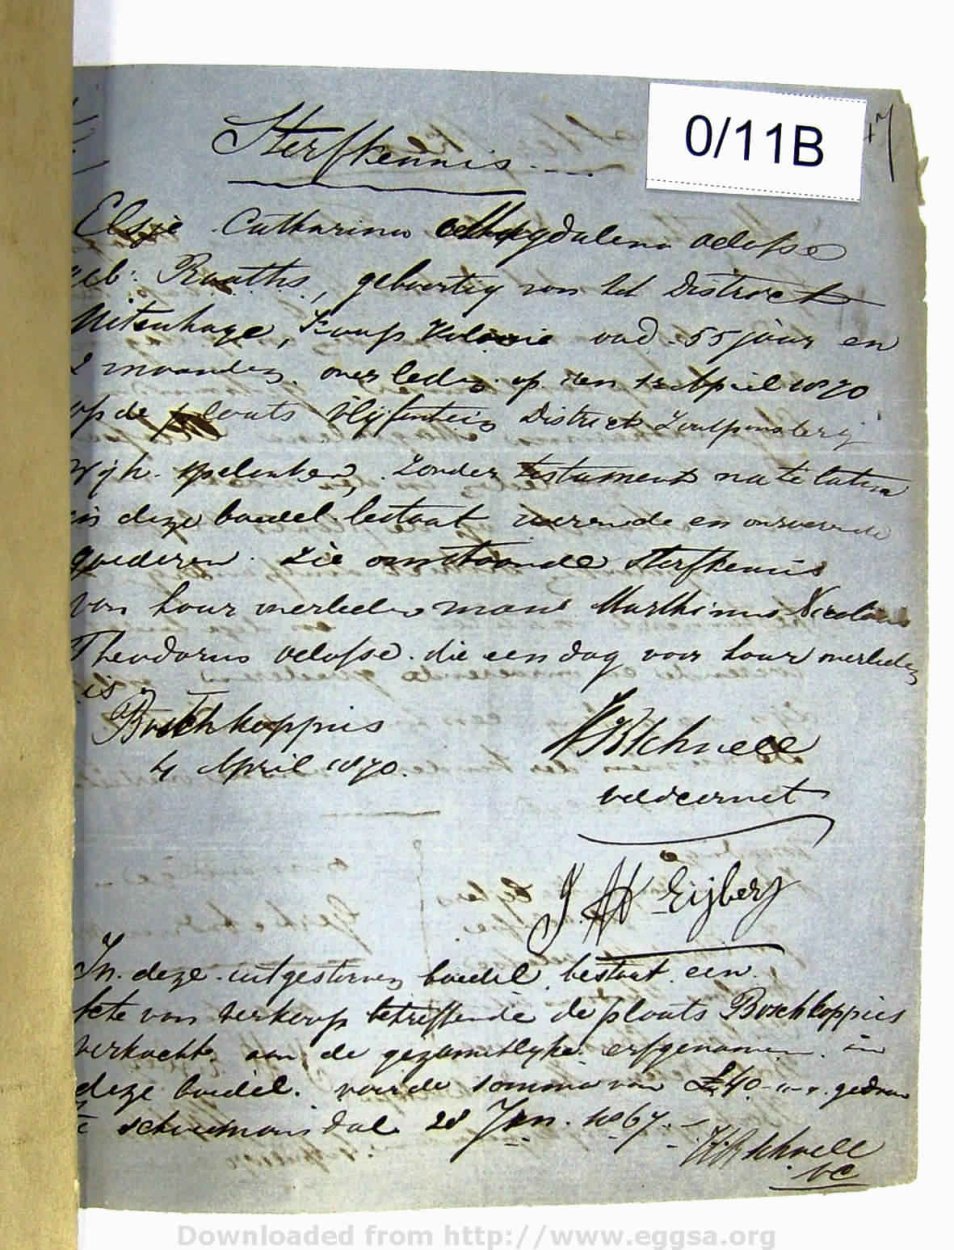 Sterfkennis
0/11B
47
Elsie Catharina Magdalena Delosse
geb: Rauths, geboortig van het District
Uitenhage, Kaaps Kolonie oud 55 jaar en
2 maanden overleden op den April 1870
op de plaats Vlijfontein District Zoutpansberg
wijk Spelonken, zonder testament na te laten
in deze boedel bestaat roerende en onroerende
goederen. Zie omstaande Sterfkennis
van haar overleden man Marthinus Nicolaas
Theodorus Delosse die een dag voor haar overleden
is
Boschkoppies
4 April 1870.
Schnell
veldcornet
J. H Eijberg
In deze uitgestorven boedel bestaat een
acte van verkoop betreffende de plaats Boschkoppies
verkocht aan de gezamentlyke erfgenamen in
deze boedel voor de somma van £40 gedaan
te Schoemansdal 28 Jan. 1867.
Schnell
VC
Downloaded from http://www.eggsa.org